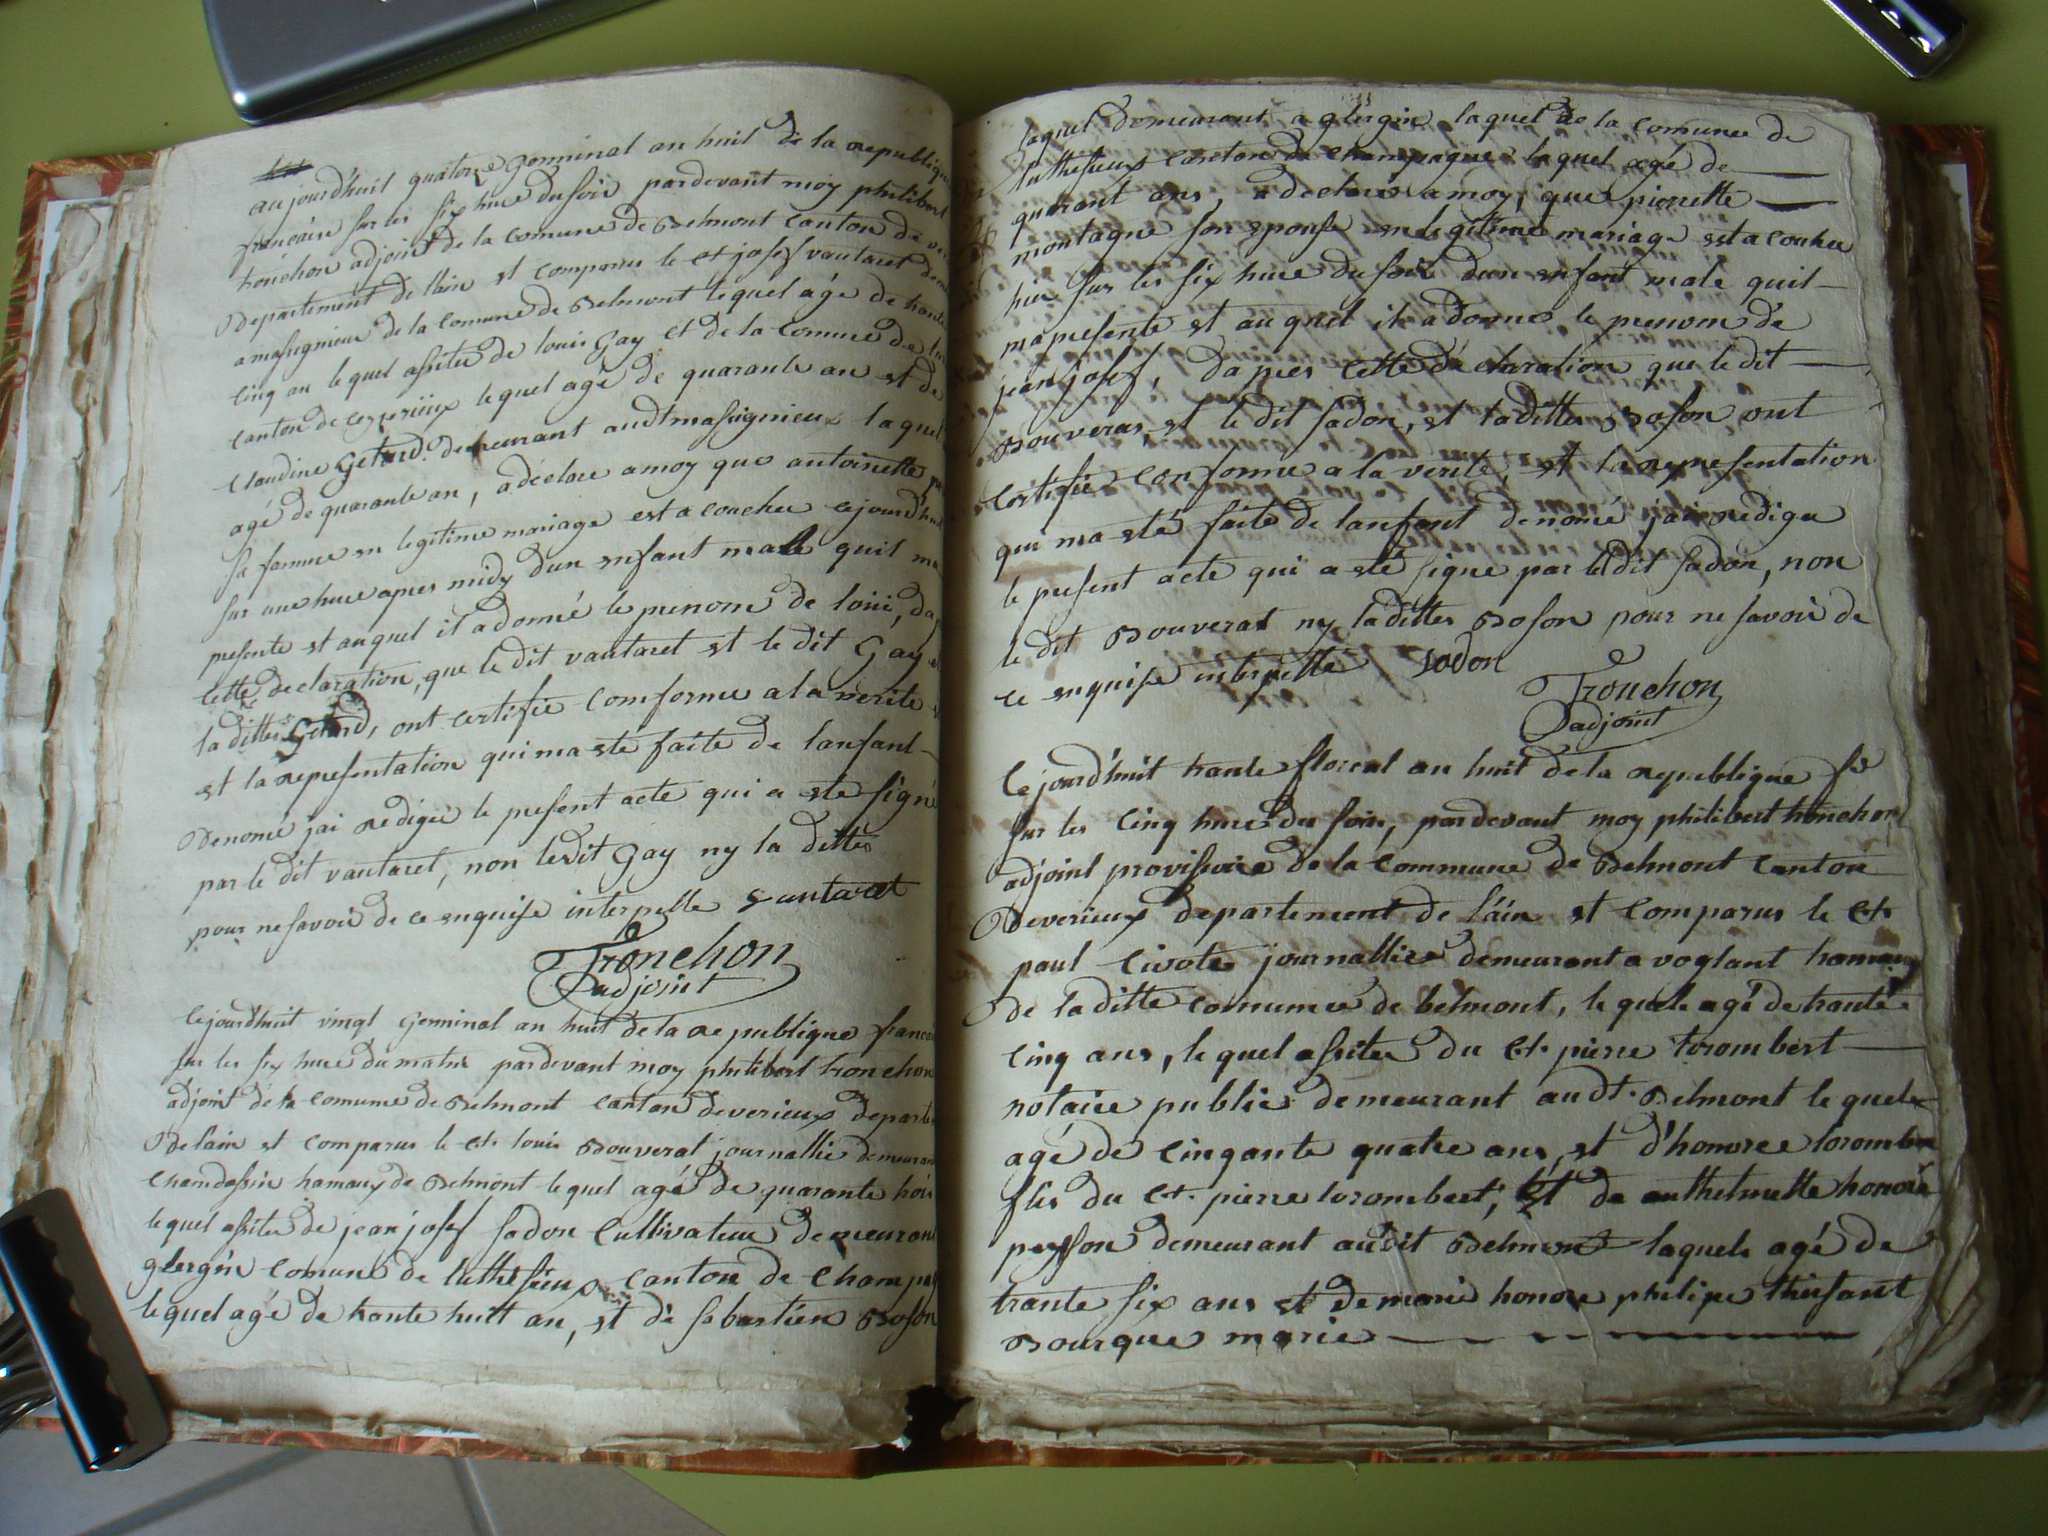 aujourdhuit quatorze Germinal an huit de la republique
françaisse sur les six hure du soir pardevant moy philibert
tronchon adjoint de la comune de Belmont canton de
Departement de lain est comparus le Ct josef vautaret
a massignieux de la comune de Belmont lequel agé de trante
cinq an le quel assites de louis Gay et de la comune de
canton de ceyzerieux le quel agé de quarante an et de
claudine Getard demeurant audt massignieux laquel
agé de quarante an, a declare a moy que antoinette
sa famme en legitime mariage est a coucheé cejourdhuit
sur une hure apres midy dun enfant male quil ma
presente et auquel il a donné le prenom de loüi, da
cette declaration, que le dit vautaret et le dit Gay
la ditte Getard, ont certifie comforme a la verite
et la representation qui ma ete faite de lanfant
Denomé jai redigée le present acte qui a ete signé
par le dit vautaret, non ledit Gay ny la ditte
pour ne savoir de ce enquise interpelle vautaret
Tronchon
adjoint
Cejourdhuit vingt Germinal an huit de la republique
sur les six hure du matin pardevant moy philibert tronchon
adjoint de la comune de Belmont canton deverieux departe
De lain est comparus le Ct louis Bouverat journallie demeurant
hamaux de Belmont lequel agé de quarante trois
le quel assites de jean josef sadon Cultivateur demeurant
glargin comune de luthesieux canton de Champ
le quel agé de trante huit an, et de sebastien Boson
laquel demeurant a glargin laquel de la comune de
luthesieux canton de Champagne laquel agé de
quarant ans, a declaré a moy, que pierrette
montagne son epouse en legitime mariage est a coucheé
hier sur les six hure du soir dun enfant male quil
ma presente et auquel il a donne le prenom de
jean josef, Dapres cette declaration que le dit
Bouverat et le dit sadon, et la ditte Boson ont
certifié conforme a la verité, et la representation
qui ma eté faite de lanfant denomé jai redigee
le present acte qui a eté signe par le dit sadon, non
le dit Bouverat ny la ditte Boson pour ne savoir de
ce enquise interpelle Sodon
Tronchon
adjoint
Cejourd'huit trante floreal an huit de la republique
sur les cinq hure du soir, pardevant moy philibert tronchon
adjoint provissoire de la commune de Belmont canton
Deverieux departement de lain est comparus le Ct
paul Civote journallier demeurant a voglant hamaux
de la ditte comunne de belmont, le quel agé de trante
cinq ans, le quel assites du Ct pierre torombert
notaire public demeurant audt. Belmont le quel
agé de cinqante quatre ans, et d'honore torombert
fils du Ct. pierre torombert, Et de anthelmette honore
peysson demeurant audit Belmont laquele agé de
trante six ans et de marie honore philipe thisfant
Bourque marie